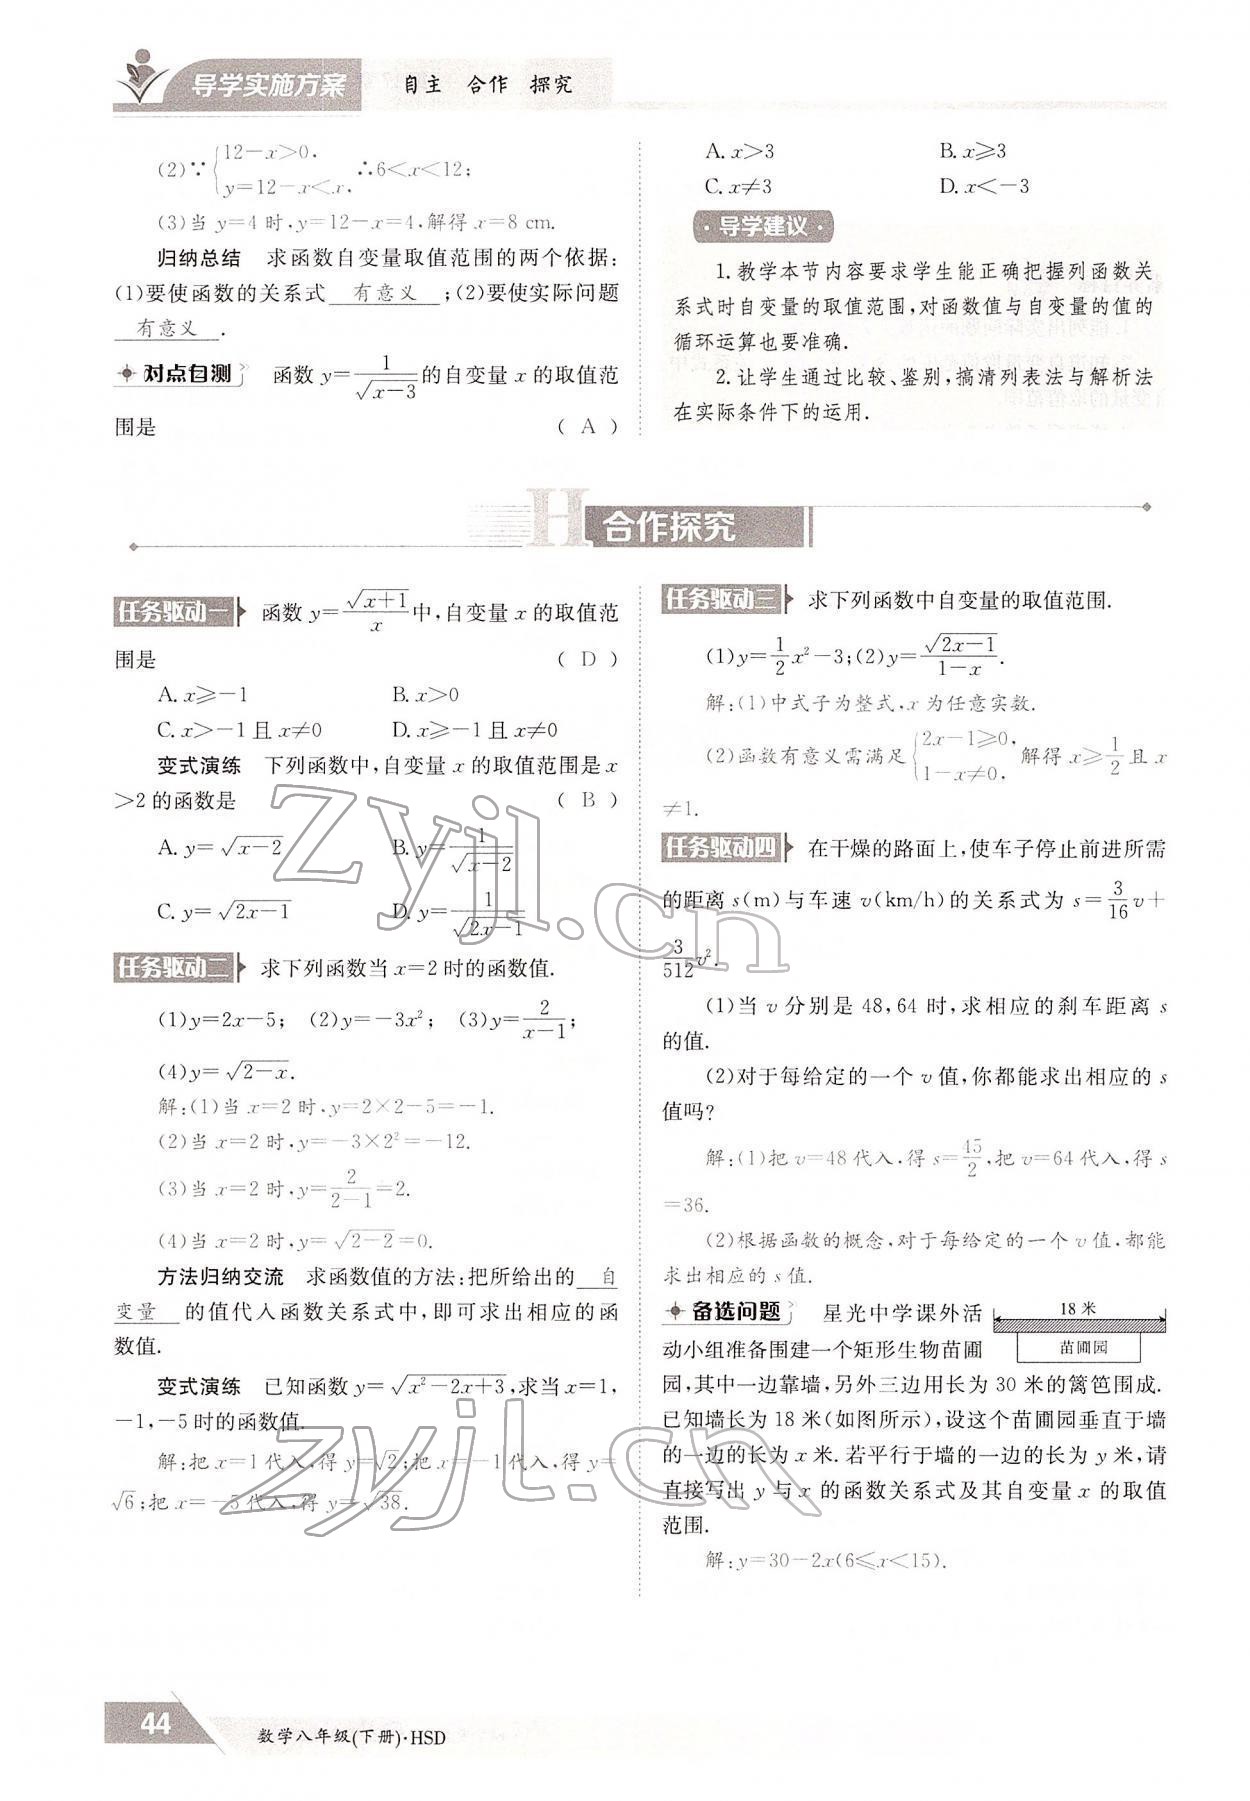 导学实施方案 自主 合作 探究
(2)∵{12-x>0, y=12-x<x, ∴6<x<12;
(3)当 y=4 时,y=12-x=4,解得 x=8 cm.
归纳总结 求函数自变量取值范围的两个依据:
(1)要使函数的关系式 有意义 ;(2)要使实际问题
有意义 .
对点自测 函数 y=1/√(x-3) 的自变量 x 的取值范
围是 ( A )
A. x>3 B. x⩾3
C. x≠3 D. x<-3
导学建议
1. 教学本节内容要求学生能正确把握列函数关
系式时自变量的取值范围,对函数值与自变量的值的
循环运算也要准确.
2. 让学生通过比较、鉴别,搞清列表法与解析法
在实际条件下的运用.
H 合作探究
任务驱动一 函数 y=√(x+1)/x 中,自变量 x 的取值范
围是 ( D )
A. x⩾-1 B. x>0
C. x>-1 且 x≠0 D. x⩾-1 且 x≠0
变式演练 下列函数中,自变量 x 的取值范围是 x
>2 的函数是 ( B )
A. y=√(x-2) B. y=1/√(x-2)
C. y=√(2x-1) D. y=1/√(2x-1)
任务驱动二 求下列函数当 x=2 时的函数值.
(1)y=2x-5; (2)y=-3x²; (3)y=2/(x-1);
(4)y=√(2-x).
解:(1)当 x=2 时,y=2×2-5=-1.
(2)当 x=2 时,y=-3×2²=-12.
(3)当 x=2 时,y=2/(2-1)=2.
(4)当 x=2 时,y=√(2-2)=0.
方法归纳交流 求函数值的方法:把所给出的 自
变量 的值代入函数关系式中,即可求出相应的函
数值.
变式演练 已知函数 y=√(x²-2x+3),求当 x=1,
-1,-5 时的函数值.
解:把 x=1 代入,得 y=√2;把 x=-1 代入,得 y=
√6;把 x=-5 代入,得 y=√38.
任务驱动三 求下列函数中自变量的取值范围.
(1)y=1/2 x²-3;(2)y=√(2x-1)/(1-x).
解:(1)中式子为整式,x 为任意实数.
(2)函数有意义需满足{2x-1⩾0, 1-x≠0, 解得 x⩾1/2 且 x
≠1.
任务驱动四 在干燥的路面上,使车子停止前进所需
的距离 s(m)与车速 v(km/h)的关系式为 s=3/16 v+
3/512 v².
(1)当 v 分别是 48,64 时,求相应的刹车距离 s
的值.
(2)对于每给定的一个 v 值,你都能求出相应的 s
值吗?
解:(1)把 v=48 代入,得 s=45/2,把 v=64 代入,得 s
=36.
(2)根据函数的概念,对于每给定的一个 v 值,都能
求出相应的 s 值.
备选问题 星光中学课外活
动小组准备围建一个矩形生物苗圃
18 米
苗圃园
园,其中一边靠墙,另外三边用长为 30 米的篱笆围成.
已知墙长为 18 米(如图所示),设这个苗圃园垂直于墙
的一边的长为 x 米. 若平行于墙的一边的长为 y 米,请
直接写出 y 与 x 的函数关系式及其自变量 x 的取值
范围.
解:y=30-2x(6⩽x<15).
zyjl.cn
zyjl.cn
44 数学八年级(下册)·HSD